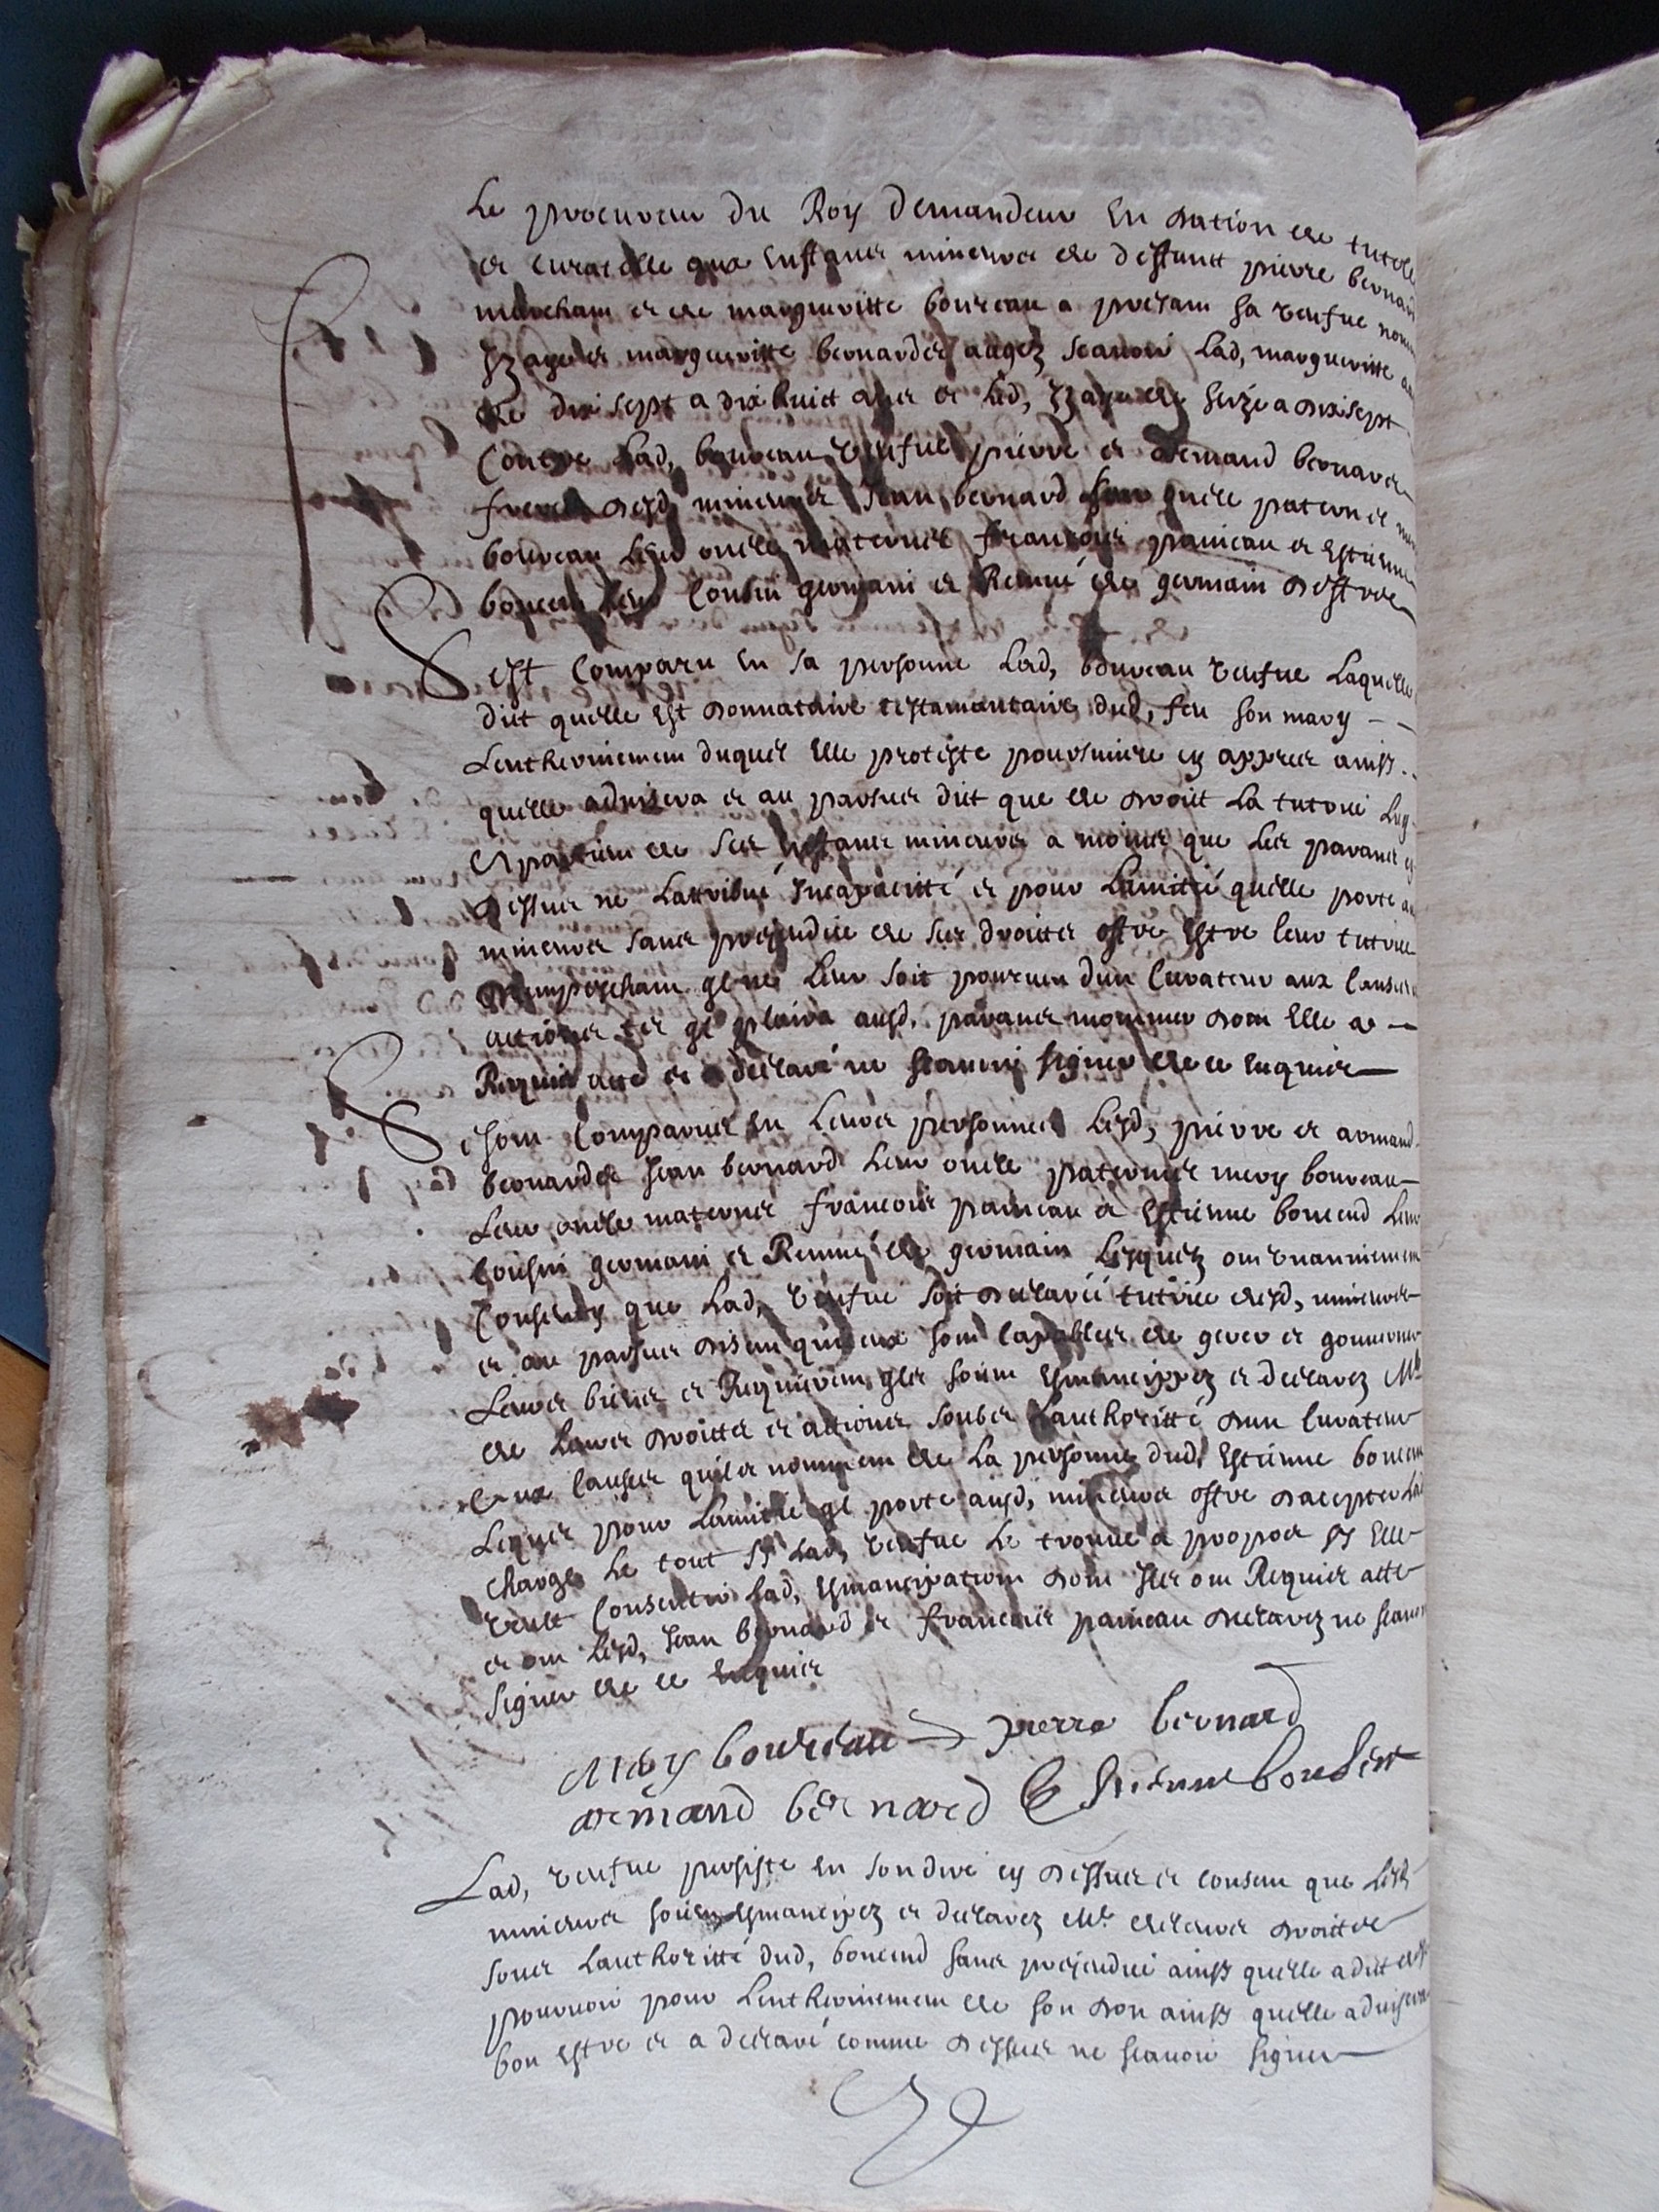 Le procureur du Roy demandeur en dation de tutele
et curatelle aux enffans mineurs de deffunct pierre bernard
marchant et de margueritte boureau a presant sa veufve
Izaye et margueritte bernardz aagez scavoir lad, margueritte
de dix sept a dix huict ans et led, Izaye de seize a dix sept
Contre lad, boureau veufve pierre et armand bernardz
freres desd, mineurs Jean bernard leur oncle paternel
boureau leur oncle maternel francois paineau et Estienne
leur Cousin germain et Remué de germain deffendeurs
Sest Comparu en sa personne lad, boureau veufve Laquelle
dict quelle est donnataire testamentaire dud, feu son mary
Lentherinement duquel elle proteste poursuivre cy appres ainsy
quelle advisera et au parsus dict que de droit la tutelle luy
apartien de ses enffans mineurs a moins que les parans cy
dessus ne Lattribue Incapacitté et pour Lamitié quelle porte aux
mineurs sans prejudice de ses droitz offre estre leur tutrice
nempeschant quil ne leur soit pourveu dun Curateur aux causes
actions tel quil plaira ausd, parans nommer dont elle a
Requis acte et a declaré ne scavoir signer de ce enquise
Se sont Comparus en leurs personnes lesd, pierre et armand
bernardz Jean bernard leur oncle paternel mery boureau
leur oncle maternel francois paineau et Estienne leur
Cousin germain et Remué de germain lesquelz ont unanimement
Consenty que lad, veufve soit declarée tutrice desd, mineurs
et au parsus disent quiceux sont capables de gerer et gouverner
Leurs biens et Requierent quilz soient Emancippez et declarez Mes
de leurs droitz et actions soubz Lauthoritté dun Curateur
aux causes quilz nomment de la personne dud, Estienne
Lequel pour Lamitié quil porte ausd, mineurs offre daccepter lad
charge le tout sy lad, veufve le trouve a propos et sy Elle
veult Consentir lad, Emancipation dont Ilz ont Requis acte
et ont lesd, Jean bernard et francois paineau declarez ne scavoir
signer de ce enquis
Mery boureau pierre bernard
armand bernard Estienne
Lad, veufve persiste en son dire cy dessus et consent que lesd
mineurs soient Emancipez et declarez Mes de leurs droitz
soubz Lauthoritté dud, sans prejudice ainsy quelle a dict de se
pourvoir pour Lentherinement de son don ainsy quelle advisera
bon estre et a declaré comme dessus ne scavoir signer